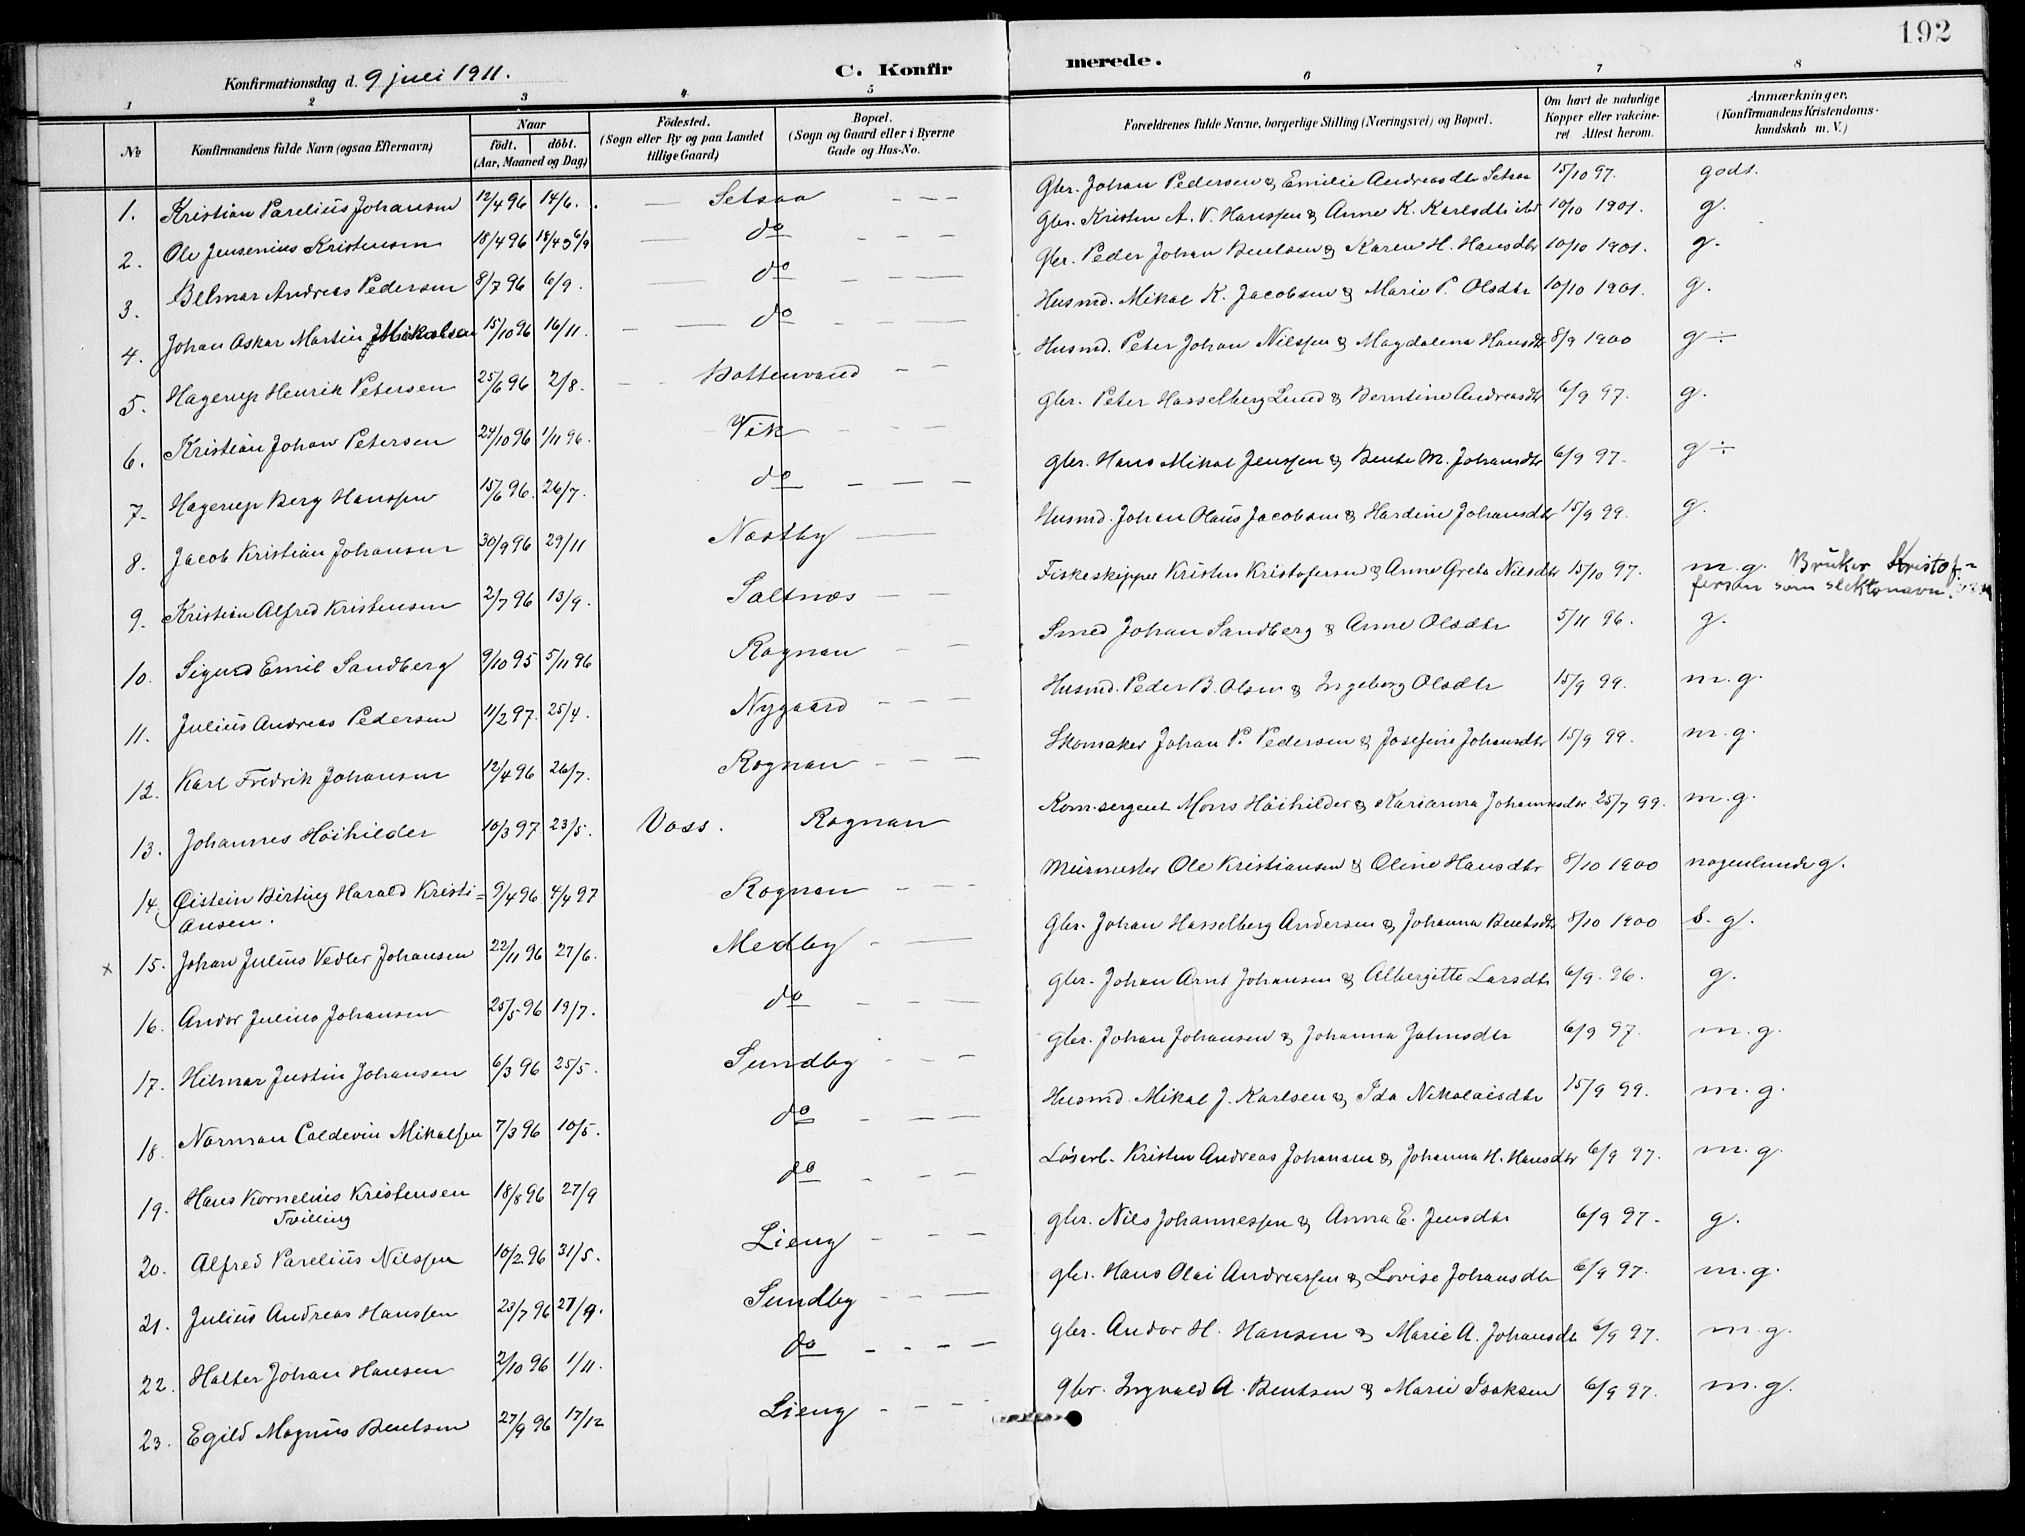 192
Konfirmationsdag d. 9 juli 1911.
C. Konfirmerede.
1 2 3 4 5 6 7 8
No
Konfirmandens fulde Navn (ogsaa Efternavn)
Naar
födt. döbt.
(Aar, Maaned og Dag)
Födested.
(Sogn eller By og paa Landet
tillige Gaard)
Bopæl.
(Sogn og Gaard eller i Byerne
Gade og Hus-No.
Forældrenes fulde Navne, borgerlige Stilling (Næringsvei) og Bopæl.
Om havt de naturlige
Kopper eller vakcine-
ret Attest herom.
Anmærkninger.
(Konfirmandens Kristendoms-
kundskab m. V.)
1. Kristian Parelius Johansen 12/4 96 14/6. — Setsaa — — — Gbr. Johan Pedersen & Emilie Andreasdtr Setsaa 15/10 97. godt.
2. Ole Jensenius Kristensen 18/4 96 — do — — — Gbr. Kristen A. V. Hanssen & Anne K. Karlsdtr 10/10 1901. g.
3. Hilmar Andreas Pedersen 8/7 96 6/9. — do — — — Gbr. Peder Johan Bentsen & Karen H. Hansdtr 10/10 1901. g.
4. Johan Oskar Martin Mikalsen 15/10 96 16/11. — do — — — Husmd. Mikal K. Jacobsen & Marie P. Olsdtr 10/10 1901. g.
5. Hagerup Henrik Petersen 25/6 96 2/8. — Bottenvand — — Husmd. Peter Johan Nilssen & Magdalena Hansdtr 8/9 1900 g ÷
6. Kristian Johan Petersen 24/10 96 1/11 96. Vik — — — Gbr. Peter Hasselberg Lund & Berntine Andreasdtr 6/9 97. g.
7. Hagerup Berg Hanssen 15/6 96. 26/7. do — — — Gbr. Hans Mikal Jenssen & Bente M. Johansdtr 6/9 97. g ÷
8. Jacob Kristian Johansen 30/9 96 29/11 Nestby — Husmd. Johan Olaus Jacobsen & Hardine Johansdtr 15/9 99. g.
9. Kristian Alfred Kristensen 2/7 96 13/9. Saltnes — — Fiskeskipper Kristen Kristofersen & Anne Greta Nilsdtr 15/10 97. m. g. Bruker Kristof-
fersen som slektsnavn.
10. Sigurd Emil Sandberg 9/10 95 5/11 96 Rognan — — Smed Johan Sandberg & Anne Olsdtr 5/11 96. g.
11. Julius Andreas Pedersen 11/2 97. 25/4. Nygaard — — Husmd. Peder B. Olsen & Ingeborg Olsdtr 15/9 99. m. g.
12. Karl Fredrik Johansen 12/4 96 26/7. Rognan — — — Skomaker Johan P. Pedersen & Josefine Johansdtr 15/9 99. m. g.
13. Johannes Höihilder 10/3 97 23/5. Voss. Rognan Kom. sergent Mons Höihilder & Karianna Johannesdtr 25/7 99. m. g.
14. Øistein Birting Harald Kristi- 9/4 96 4/4 97 Rognan — — — Murmester Ole Kristiansen & Oline Hansdtr 8/10 1900 nogenlunde g.
ansen.
x 15. Johan Julius Vedler Johansen 22/11 96 27/6. Medby — — Gbr. Johan Hasselberg Andersen & Johanna Bentsdtr 8/10 1900 s. g.
16. Andor Julius Johansen 25/5 96 19/7. do — — — Gbr. Johan Arnt Johansen & Albergitte Larsdtr 6/9. 96. g.
17. Hilmar Justin Johansen 6/3 96 25/5. Sundby — — Gbr. Johan Johansen & Johanna Jakobsdtr 6/9 97. m. g.
18. Norman Coldevin Mikalsen 7/3 96 10/5. do — — — Husmd. Mikal J. Karlsen & Ida Nikolaisdtr 15/9 99. m. g.
19. Hans Kornelius Kristensen 18/8 96 27/9 do — — — Löserb. Kristen Andreas Johansen & Johanna H. Hansdtr 6/9 97. m. g.
Tvilling
20. Alfred Parelius Nilssen 10/2 96 31/5. Lieng — — — Gbr. Nils Johannessen & Anna E. Jensdtr 6/9 97. g.
21. Julius Andreas Hanssen 23/7 96 27/9. Sundby — — — Gbr. Hans Olai Andreassen & Lovise Johansdtr 6/9 97. m. g.
22. Halter Johan Hansen 2/10 96 1/11. do — — — — Gbr. Andor H. Hansen & Marie A. Johansdtr 6/9 97. m. g.
23. Egild Magnus Bentsen 27/9 96 17/12 Lieng — — — Gbr. Ingvald A. Bentsen & Marie Isaksen 6/9 97. m. g.